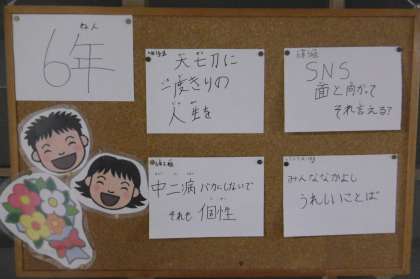 ねん
6年
大切に
一度きりの
人生を
SNS
面と向かって
それ言える?
中二病バカにしないで
それも個性
みんななかよし
うれしいことば